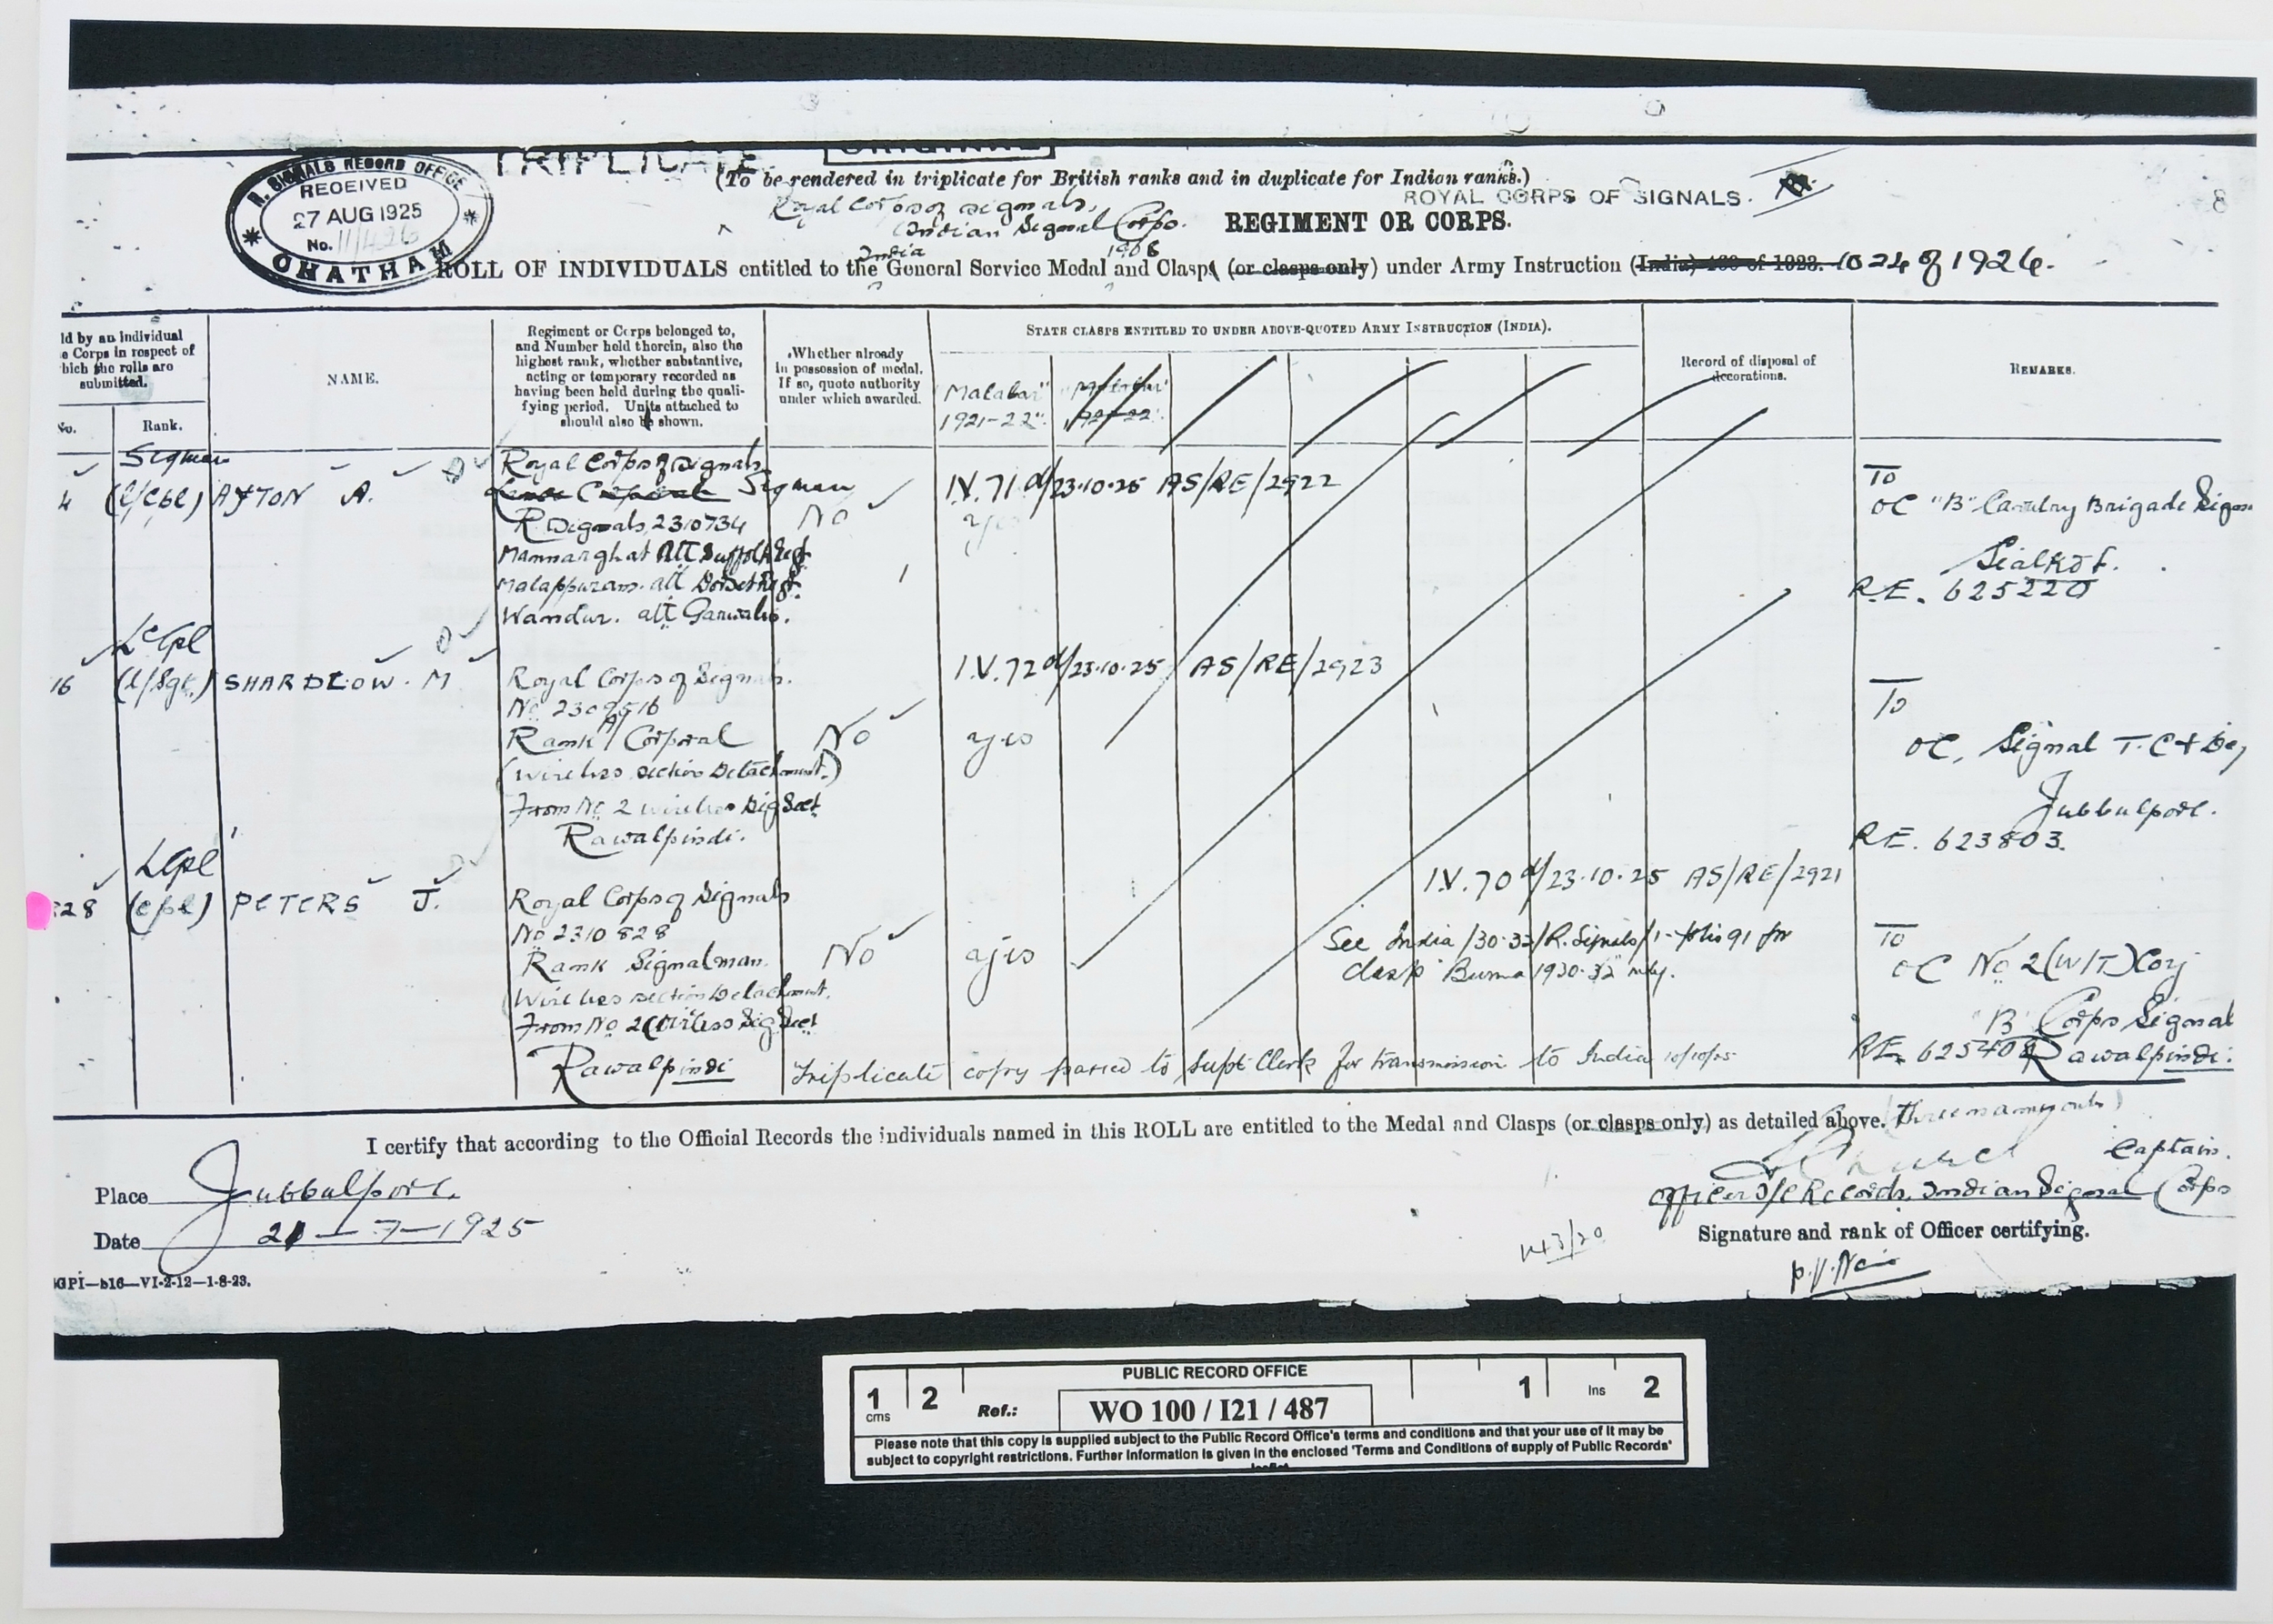 TRIPLICATE
ORIGINAL
R. SIGNALS RECORD OFFICE
RECEIVED
27 AUG 1925
No. 11/426
CHATHAM
(To be rendered in triplicate for British ranks and in duplicate for Indian ranks.)
ROYAL CORPS OF SIGNALS.
8
Royal Corps of Signals,
Indian Signal Corps. REGIMENT OR CORPS.
India 1908
ROLL OF INDIVIDUALS entitled to the General Service Medal and Clasp (or clasps only) under Army Instruction (India) 180 of 1923. 1024 of 1924.
ld by an individual
e Corps in respect of
hich the rolls are
submitted.
No.
Rank.
NAME.
Regiment or Corps belonged to,
and Number held therein, also the
highest rank, whether substantive,
acting or temporary recorded as
having been held during the quali-
fying period. Units attached to
should also be shown.
Whether already
in possession of medal.
If so, quote authority
under which awarded.
STATE CLASPS ENTITLED TO UNDER ABOVE-QUOTED ARMY INSTRUCTION (INDIA).
"Malabar"
1921-22".
"Malabar"
1921-22".
Record of disposal of
decorations.
REMARKS.
Sigman
4 (L/Cpl) AYTON A.
Royal Corps of Signals
Lance Corporal Sigman
R. Signals, 2310734
Mannarghat att Suffolk Regt.
Malappuram. att Dorset Regt.
Wandur. att Garwalis.
No
I.V. 71 d/23.10.25 AS/RE/2922
yes
To
OC "B" Cavalry Brigade Signa
Sialkot.
R.E. 625220
L/Cpl
16 (L/Sgt.) SHARDLOW. M
Royal Corps of Signals.
No 2309516
Rank A/Corporal
(Wireless section Detachment.)
From No 2 wireless Sig Sect
Rawalpindi.
No
I.V. 72 d/23.10.25 AS/RE/2923
yes
To
OC, Signal T.C +
Jubbulpore.
RE. 623803.
LCpl
28 (Cpl) PETERS J.
Royal Corps of Signals
No 2310828
Rank Signalman.
(Wireless section Detachment.
From No 2 (Wireless Sig Sect
Rawalpindi
No
yes
I.V. 70 d/23.10.25 AS/RE/2921
See India/30-32/R.Signals/1-folio 91 for
clasp "Burma 1930-32" only.
To
OC No 2 (W/T) Coy
"B" Corps Signal
Rawalpindi.
RE. 625408
Triplicate copy passed to Supt Clerk for transmission to India 10/10/25
I certify that according to the Official Records the individuals named in this ROLL are entitled to the Medal and Clasps (or clasps only) as detailed above. (three names only)
Captain.
Officer I/C Records, Indian Signal Corps
Signature and rank of Officer certifying.
Place Jubbulpore.
Date 21-7-1925
143/20
P.V. Nair
GPI—b16—VI-2-12—1-8-23.
PUBLIC RECORD OFFICE
1 cms 2
Ref.: WO 100 / I21 / 487
1 Ins 2
Please note that this copy is supplied subject to the Public Record Office's terms and conditions and that your use of it may be
subject to copyright restrictions. Further information is given in the enclosed 'Terms and Conditions of supply of Public Records'
leaflet